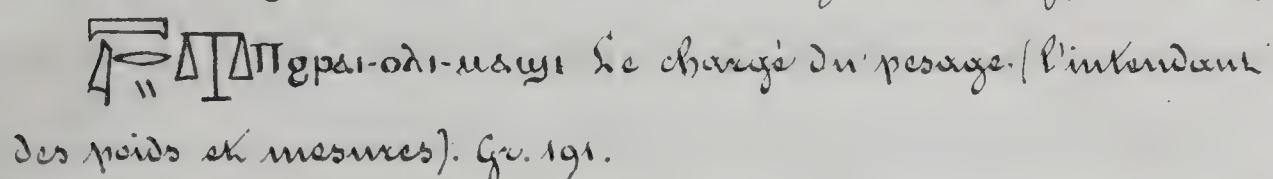 Ⲡϩⲣⲁⲓ-ⲟⲗⲓ-ⲙⲁϣⲓ Le chargé du pesage. (l'intendant
des poids et mesures). Gr. 191.